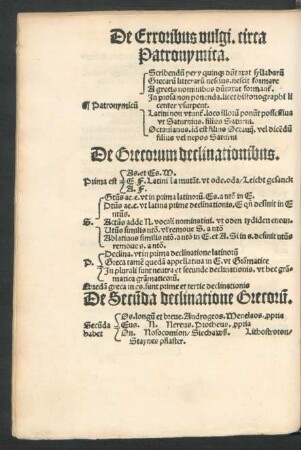 De Erroribus vulgi. circa
Patronymica.
Scribendū per y quinqʒ dūtaxat syllabarū
Grecarū litterarū nescius, nescit formare
A grecis nominibus dūtaxat formanť
In prosa non ponenda. licet historiographi li
center vsurpent.
¶ Patronymicū
Latini non vtunť. loco illorū ponūt possessiua
vt Saturnius. filius Saturni.
Octauianus. id est filius Octauij. vel dicēdū
filius vel nepos Saturni
De Grecorum declinationibus.
As. et Es. M.
Prima est E F. Latini in a mutāt. vt ode. oda / Leicht gesanck
A. F.
Gtūs ae. e. vt in prima latinorū. Es. a nřo in E.
Dtūs ae. e. vt latina prime declinationis. E q̄ desinit in E
ntūs.
S. Actūs adde N. vocali nominatiui. vt oden tydiden enean.
Vtūs similis nřo. vľ remoue S. a nřo
Ablatiuus similis nřo. a nřo in E. et A. Si in s. desinit remoue
s. a nřo.
Declina. vt in prima declinatione latinorū
P. Greca tamē quedā appellatiua in E. vt Grāmatice
In plurali sunt neutra et secunde declinationis. vt hec grā-
matica grāmaticorū.
Quedā greca in es. sunt prime et tertie declinationis
De Secūda declinatione Grecorū.
Os. longū et breue. Androgeos. Menelaos. ꝓpria
Secūda Eus. N. Nereus. Protheus. ꝓpria
habet On. Nosocomion / Siechawß. Lithostroton /
Staynes pflaster.